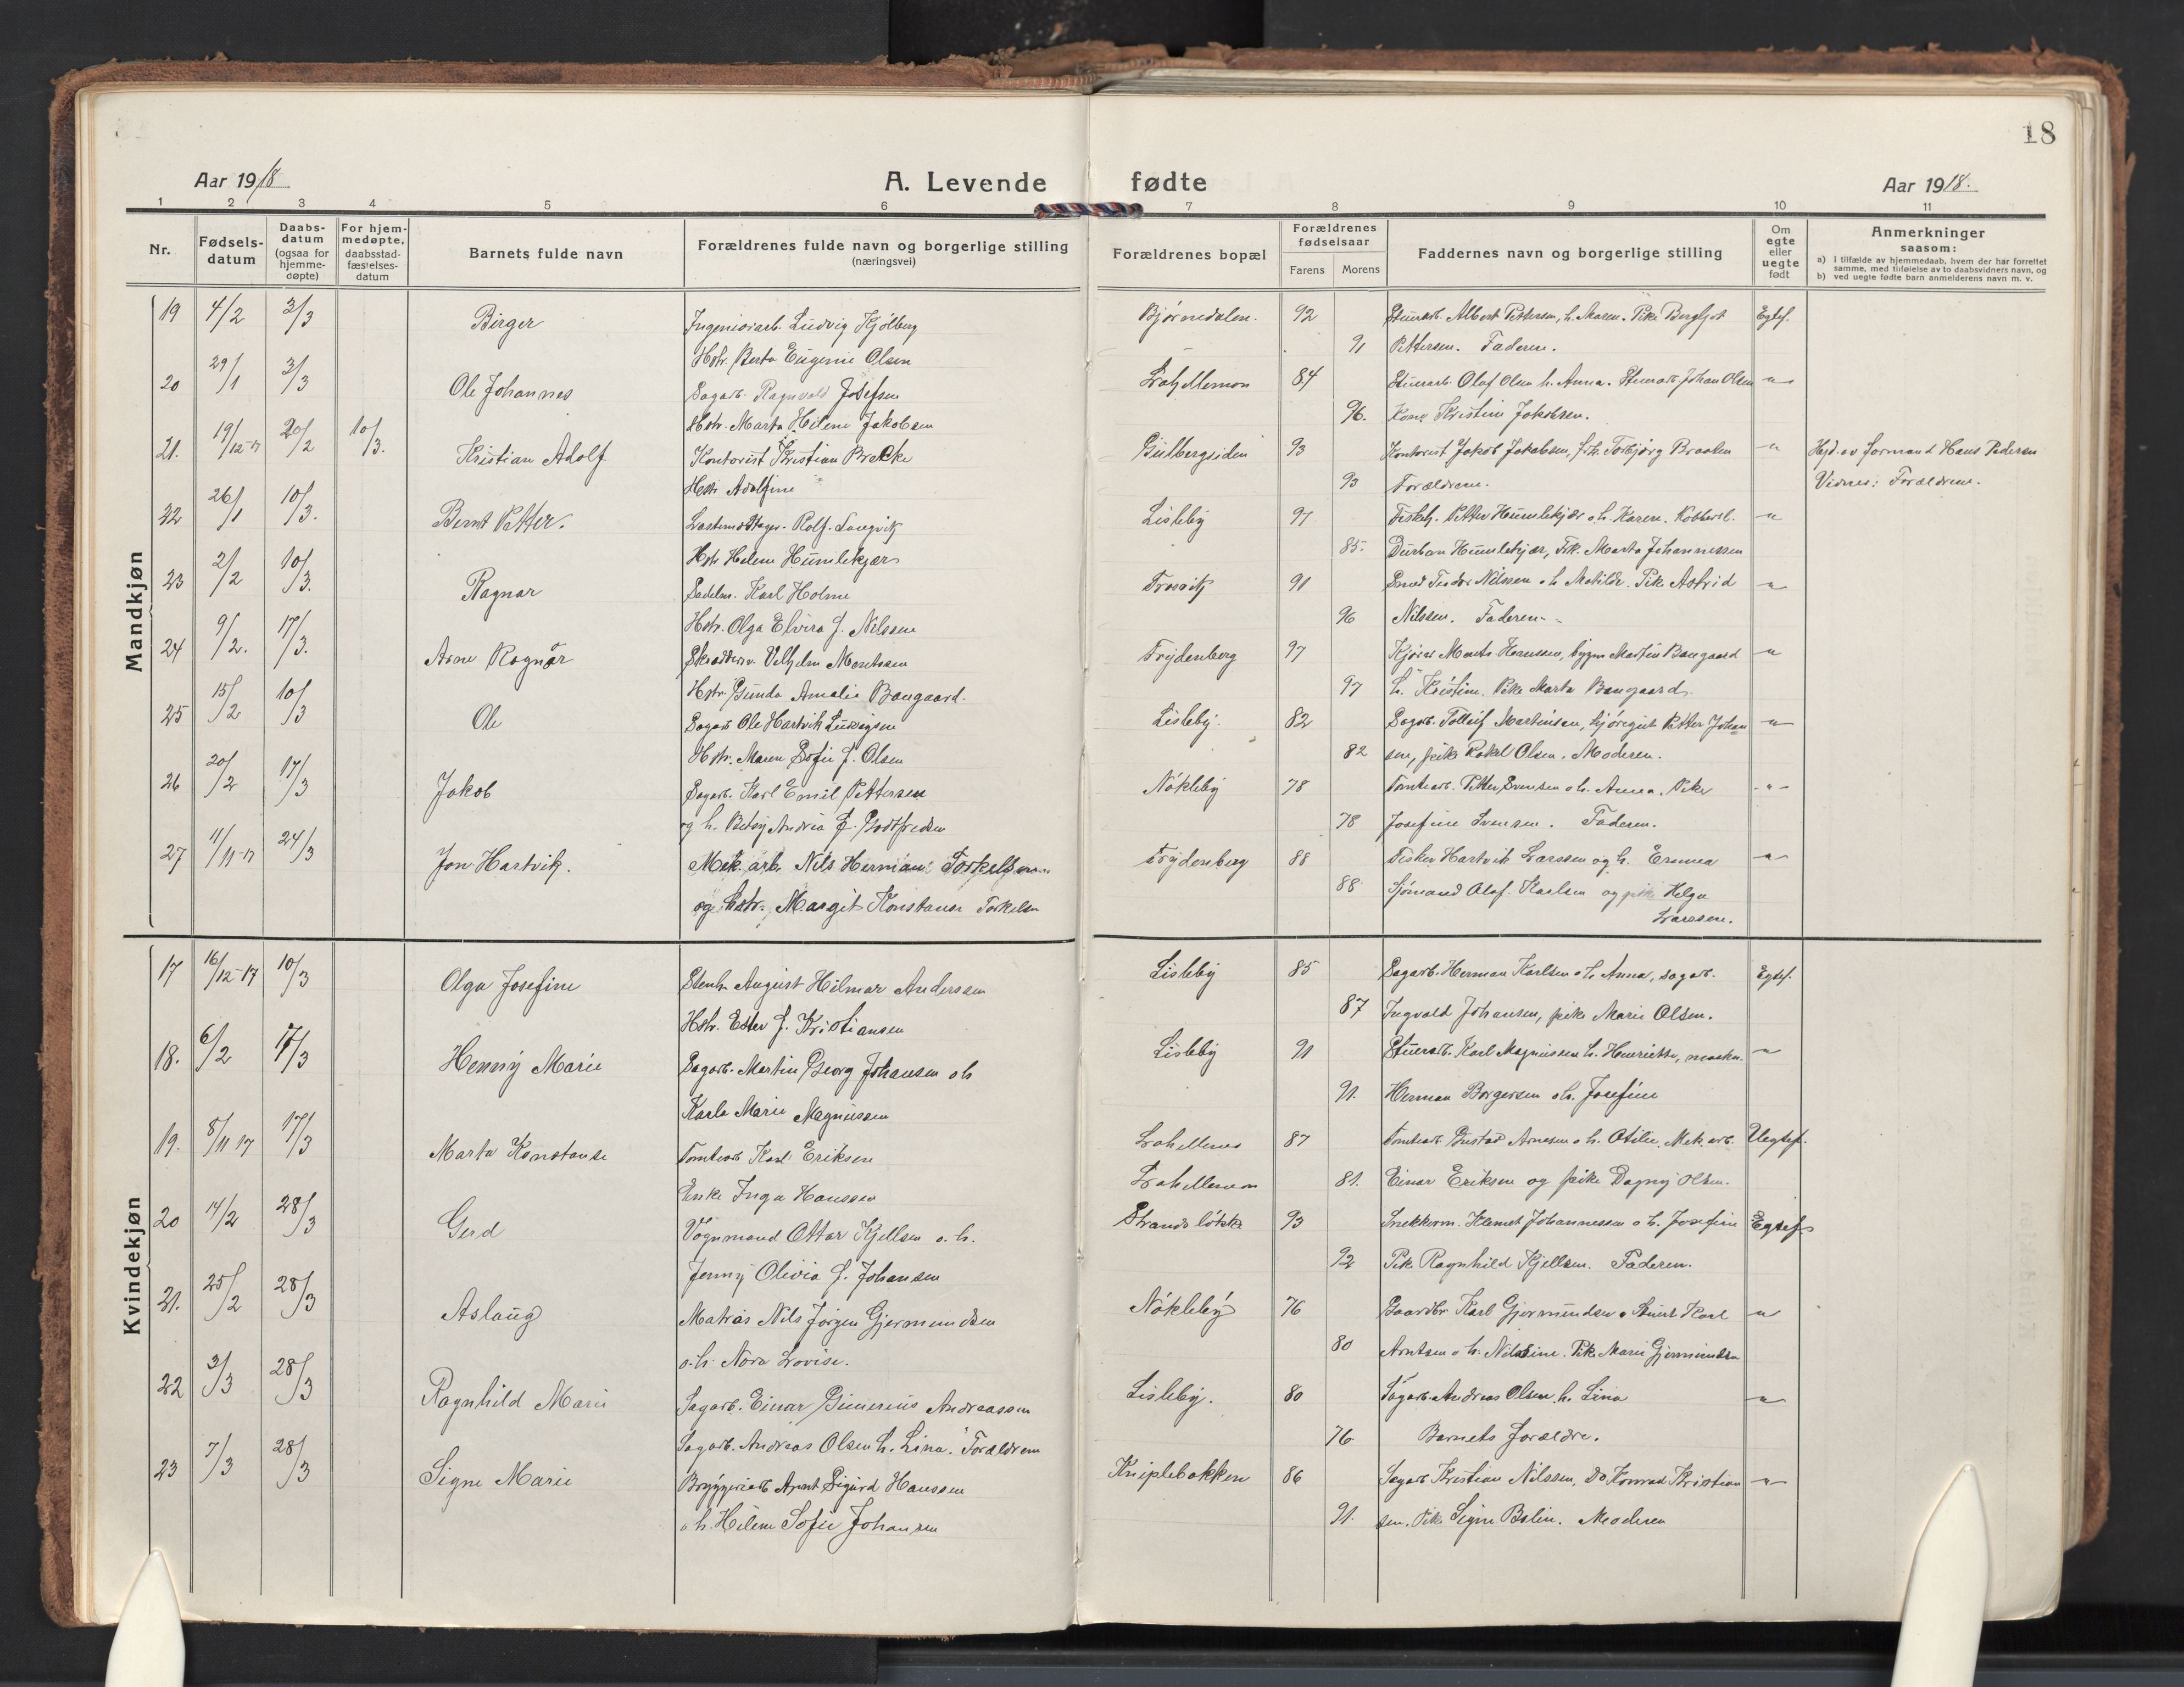 18
Aar 1918
A. Levende fødte
Aar 1918.
1 2 3 4 5 6 7 8 9 10 11
Nr.
Fødsels-
datum
Daabs-
datum
(ogsaa for
hjemme-
døpte)
For hjem-
medøpte,
daabsstad-
fæstelses-
datum
Barnets fulde navn
Forældrenes fulde navn og borgerlige stilling
(næringsvei)
Forældrenes bopæl
Forældrenes
fødselsaar
Farens Morens
Faddernes navn og borgerlige stilling
Om
egte
eller
uegte
født
Anmerkninger
saasom:
a) I tilfælde av hjemmedaab, hvem der har forrettet
samme, med tilføielse av to daabsvidners navn, og
b) ved uegte fødte barn anmelderens navn m. v.
Mandkjøn
19 4/2 3/3 Birger Ingeniørarb. Ludvig Kjölberg Bjørnedalen. 92 Stuearb. Albert Pettersen, h. Maren. Pike Bergljot Egtef.
Hstr. Berta Eugenie Olsen 91 Pettersen. Faderen.
20 29/1 3/3 Ole Johannes Sagarb. Ragnvald Josefsen 84 Stuerarb. Olaf Olsen h. Anna. Stuerarb. Johan Olsen "
Hstr. Marta Helene Jakobsen 96. Kone Kristine Jakobsen.
21. 19/12-17 20/2 10/3. Kristian Adolf Kontorist Kristian Bracke Gulbergsiden 93 Kontorist Jakob Jakobsen, frk. Torbjørg Braaten " Hjd. av formand Hans Pedersen
Hstr. Adolfine 93 Forældrene. Vidner: Forældrene.
22 26/1 10/3. Bernt Petter. Lastemodtager. Rolf Langvik Lisleby 91 Fiskeh. Petter Humlekjær o h. Karen. Kobbersl. "
Hstr. Helene Humlekjær 85. Durban Humlekjær, Frk. Marta Johannessen
23 2/2 10/3. Ragnar Sadelm. Karl Holme Trosvik 91 Smed Teodor Nilssen o h. Matilde. Pike Astrid "
Hstr. Olga Elvira f. Nilssen 96 Nilssen. Faderen.
24 9/2. 17/3. Arne Ragnar Skrædderm. Vilhelm Moritssen Frydenberg 97 Kjører Morits Hanssen, bygm Martin Baugaard "
Hstr. Gunda Amalie Baugaard. 97 h. Kristine. Pike Marta Baugaard.
25 15/2 10/3 Ole Sagarb Ole Hartvik Ludvigsen Lisleby. 82 Sagarb. Tolleif Martinsen, kjøregut Petter Johan- "
Hstr. Maren Sofie f. Olsen 82 sen, pike Rakel Olsen. Moderen.
26 20/2 17/3 Jakob Sagarb. Karl Emil Pettersen Nökleby 78 Tomtearb. Petter Svensen o h. Anna. Pike "
og h. Betsy Andrea f. Godtfredsen 78 Josefine Svensen. Faderen.
27 11/11-17 24/3 Jon Hartvik. Mek. arb. Nils Herman Torkelsen Frydenberg 88 Fisker Hartvik Larssen og h. Emma "
og hstr. Margit Konstanse Torkelsen 88 Sjømand Olaf Karlsen og pike Helga
Larssen.
Kvindekjøn
17 16/12-17 10/3 Olga Josefine Stenh. August Hilmar Anderssen Lisleby 85 Sagarb. Herman Karlsen o h. Anna, sagarb. Egtef.
Hstr. Ester f. Kristiansen 87 Ingvald Johansen, pike Marie Olsen.
18. 6/2 17/3 Henny Marie Sagarb. Martin Georg Johansen o h Lisleby 91 Stuerarb. Karl Magnussen h. Henriette, maskn. "
Karla Marie Magnussen 91. Herman Borgersen o h. Josefine
19. 8/11 17 17/3 Marta Konstanse Tomtearb Karl Eriksen 87 Tomtearb Gustav Arnesen o h. Otilie. Mek. arb. Uegtef.
Enke Inga Hanssen 81. Einar Eriksen og pike Dagny Olsen.
20 14/2 28/3 Gerd Vognmand Ottar Kjellsen o. h. 93 Snekkerm. Klemet Johannessen o h. Josefine Egtef.
Jenny Olivia f. Johansen 92 Pike Ragnhild Kjellsen. Faderen.
21. 25/2 28/3 Aslaug Matros Nils Jørgen Gjermundsen Nökleby 76 Gaardbr. Karl Gjermundsen o Karl "
o. h. Nora Lovise. 80 Arntsen o h. Nilsine. Pike Marie Gjermundsen
22 3/3 28/3 Ragnhild Marie Sagarb. Einar Gunerius Andreassen Lisleby. 80 Sagarb. Andreas Olsen h. Lina "
Sagarb. Andreas Olsen h. Lina. Forældrene 76 Barnets forældre.
23 7/3 28/3 Signe Marie Bryggeriarb Arnt Sigurd Hanssen Kniplebakken 86 Sagarb Kristian Nilssen, Do Konrad Kristian "
o h. Helene Sofie Johansen 91. sen. Pike Signe Bolin. Moderen